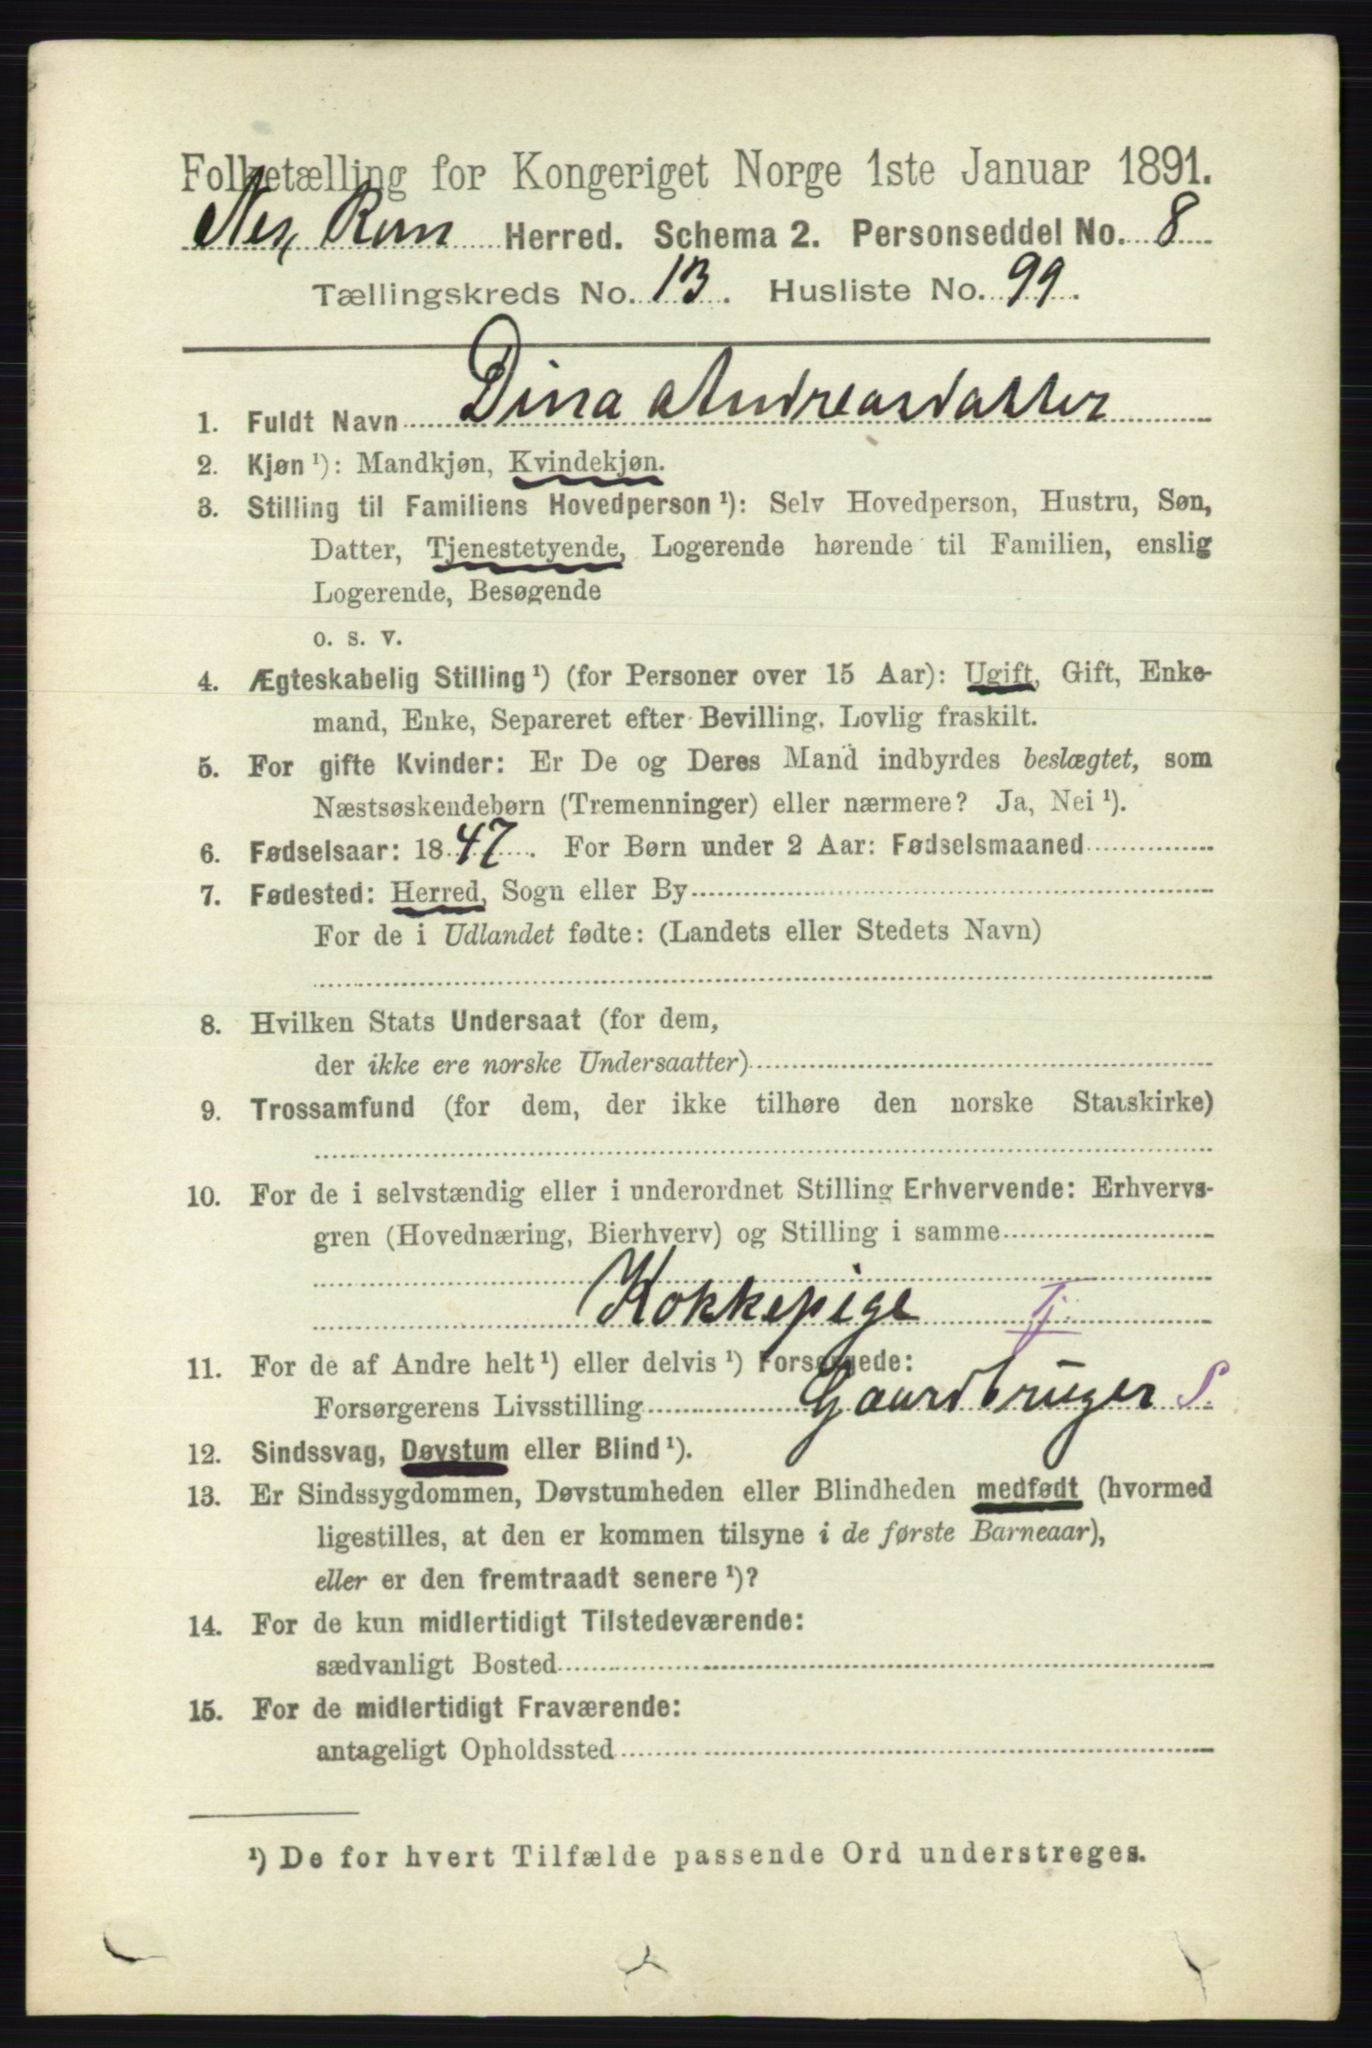 Folketælling for Kongeriget Norge 1ste Januar 1891.
Nes, Rom Herred. Schema 2. Personseddel No. 8
Tællingskreds No. 13. Husliste No. 99.
1. Fuldt Navn Dina Andreasdatter
2. Kjøn ¹): Mandkjøn, Kvindekjøn.
3. Stilling til Familiens Hovedperson ¹): Selv Hovedperson, Hustru, Søn,
Datter, Tjenestetyende, Logerende hørende til Familien, enslig
Logerende, Besøgende
o. s. v.
4. Ægteskabelig Stilling ¹) (for Personer over 15 Aar): Ugift, Gift, Enke-
mand, Enke, Separeret efter Bevilling. Lovlig fraskilt.
5. For gifte Kvinder: Er De og Deres Mand indbyrdes beslægtet, som
Næstsøskendebørn (Tremenninger) eller nærmere? Ja, Nei ¹).
6. Fødselsaar: 1847. For Børn under 2 Aar: Fødselsmaaned
7. Fødested: Herred, Sogn eller By
For de i Udlandet fødte: (Landets eller Stedets Navn)
8. Hvilken Stats Undersaat (for dem,
der ikke ere norske Undersaatter)
9. Trossamfund (for dem, der ikke tilhøre den norske Statskirke)
10. For de i selvstændig eller i underordnet Stilling Erhvervende: Erhvervs-
gren (Hovednæring, Bierhverv) og Stilling i samme
Kokkepige Tj.
11. For de af Andre helt ¹) eller delvis ¹) Forsørgede:
Forsørgerens Livsstilling Gaardbruger S.
12. Sindssvag, Døvstum eller Blind ¹).
13. Er Sindssygdommen, Døvstumheden eller Blindheden medfødt (hvormed
ligestilles, at den er kommen tilsyne i de første Barneaar),
eller er den fremtraadt senere ¹)?
14. For de kun midlertidigt Tilstedeværende:
sædvanligt Bosted
15. For de midlertidigt Fraværende:
antageligt Opholdssted
¹) De for hvert Tilfælde passende Ord understreges.